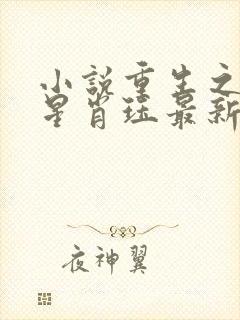 小说重生之
星肖珏最新
夜神翼